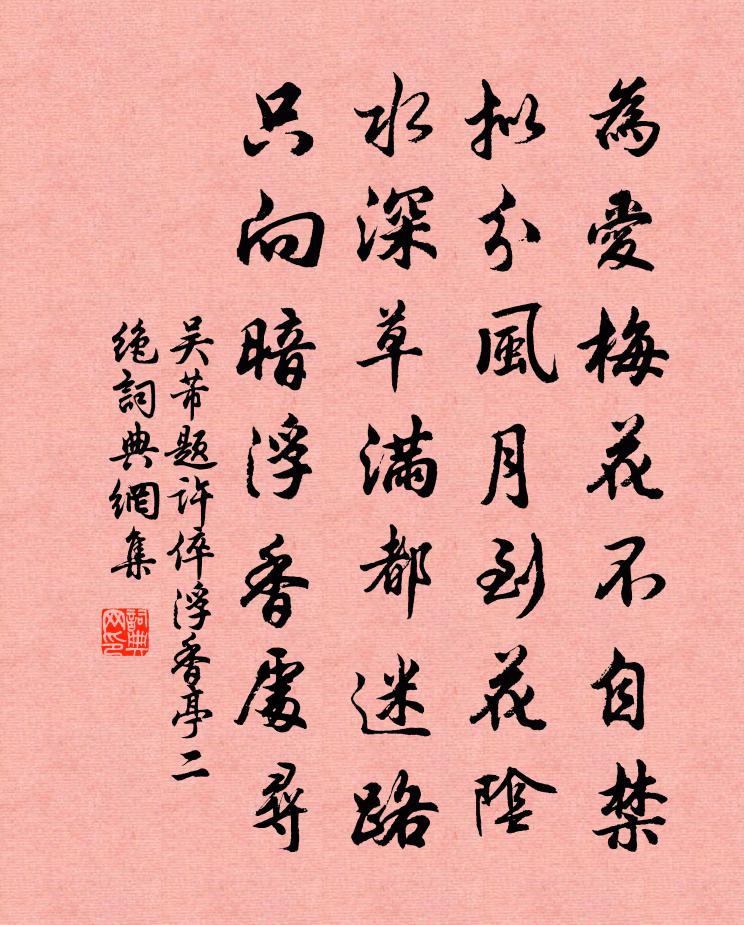 為愛梅花不自禁
擬分風月到花陰
水深草滿都迷路
只向暗浮香處尋
吴芾题許倅浮香亭二
絕詞典網集
詞典网印